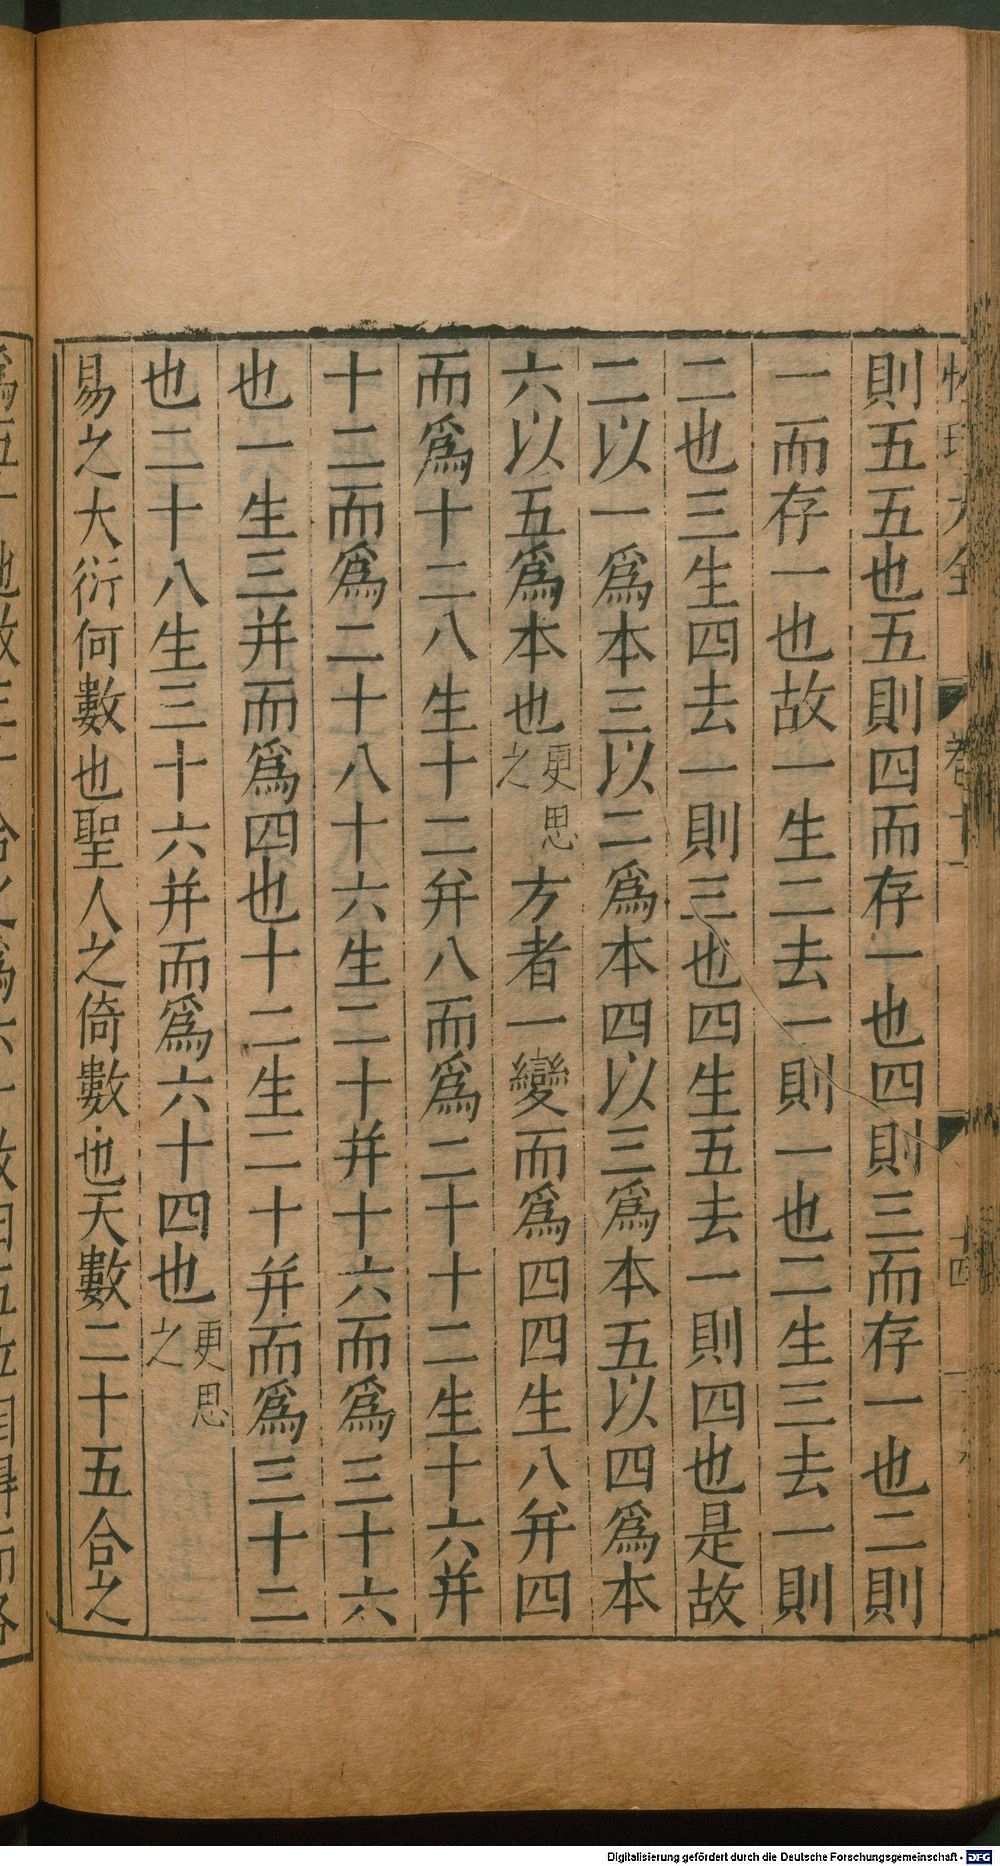 則五五也五則四而存一也四則三而存一也二則
一而存一也故一生二去一則一也二生三去一則
二也三生四去一則三也四生五去一則四也是故
二以一爲本三以二爲本四以三爲本五以四爲本
六以五爲本也更思之方者一變而爲四四生八并四
而爲十二八生十二并八而爲二十十二生十六并
十二而爲二十八十六生二十并十六而爲三十六
也一生三并而爲四也十二生二十并而爲三十二
也二十八生三十六并而爲六十四也更思之
易之大衍何數也聖人之倚數也天數二十五合之
Digitalisierung gefördert durch die Deutsche Forschungsgemeinschaft - DFG